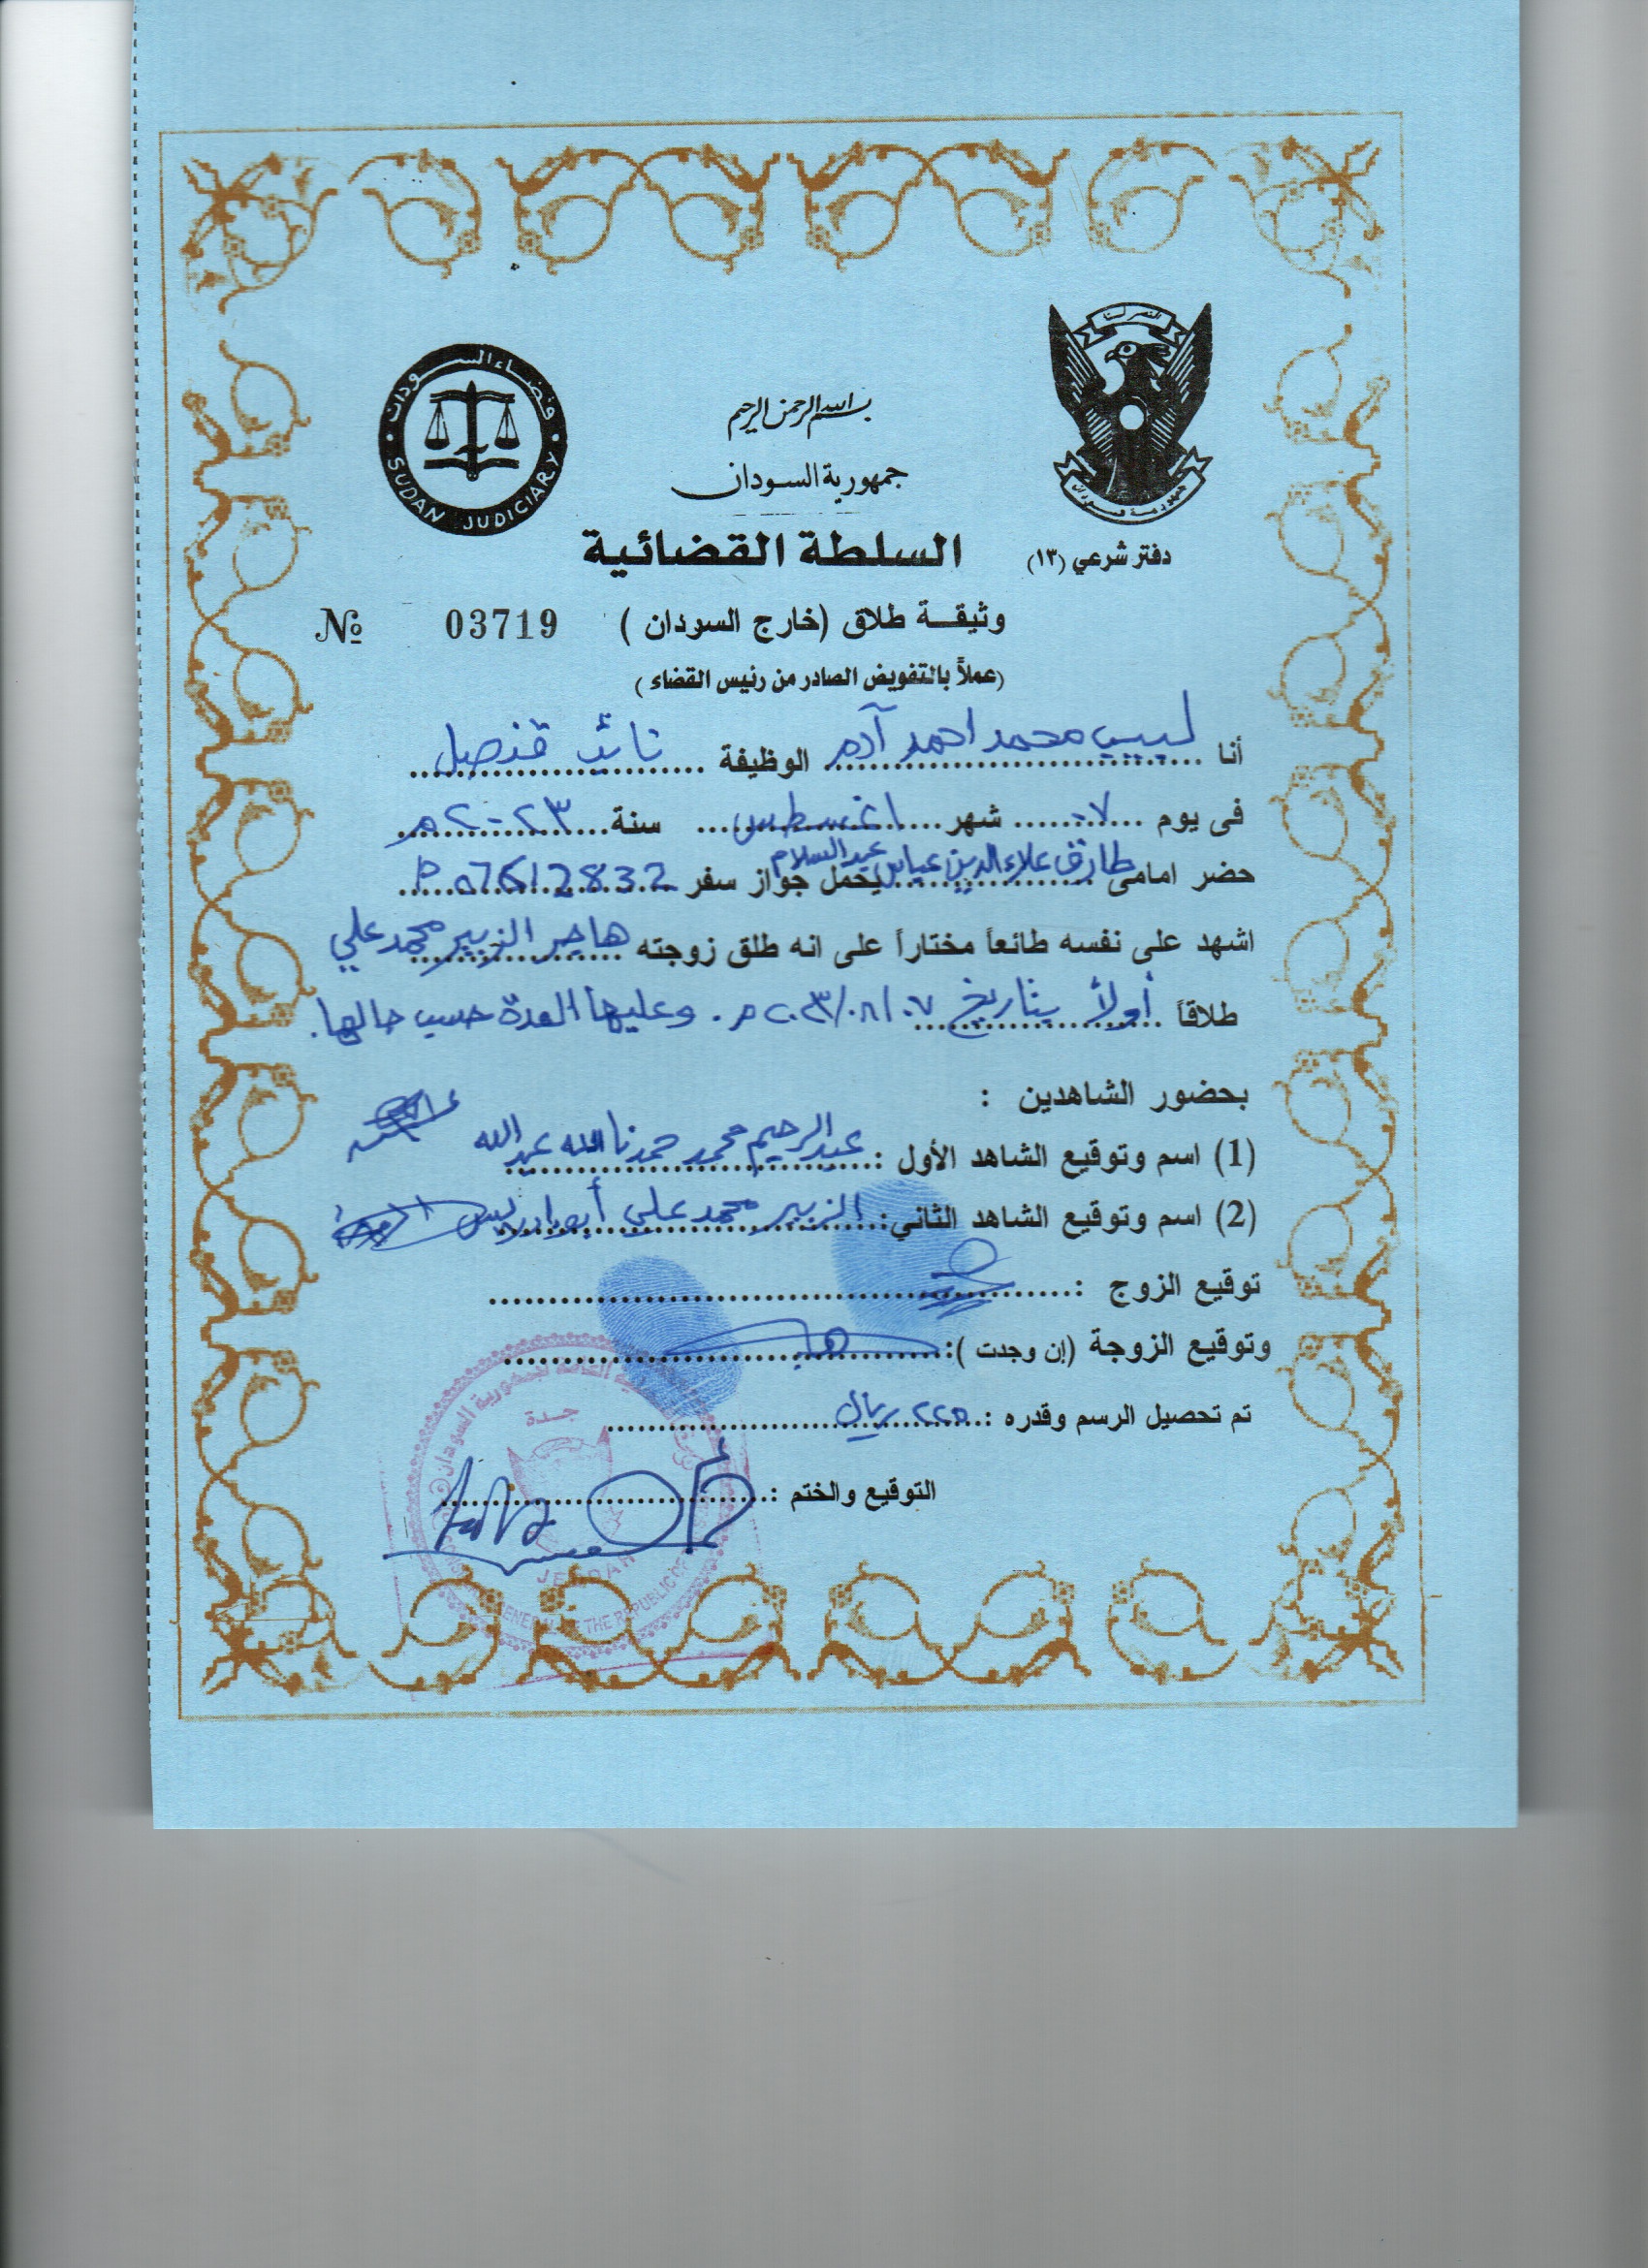 النصر لنا
جمهورية السودان
قضاء السودان
SUDAN JUDICIARY
بسم الله الرحمن الرحيم
جمهورية السودان
السلطة القضائية
دفتر شرعي (١٣)
وثيقة طلاق (خارج السودان )
№ 03719
(عملاً بالتفويض الصادر من رئيس القضاء )
أنا لبيب محمد احمد آدم الوظيفة نائب قنصل
فى يوم ٠٧ شهر اغسطس سنة ٢٠٢٣م
حضر امامى طارق علاء الدين عباس عبد السلام يحمل جواز سفر P07612832
اشهد على نفسه طائعاً مختاراً على انه طلق زوجته هاجر الزبير محمد علي
طلاقاً أولاً بتاريخ ٠٧/٠٨/٢٠٢٣م. وعليها العدة حسب حالها.
بحضور الشاهدين :
(1) اسم وتوقيع الشاهد الأول : عبد الرحيم محمد حمدنا الله عبد الله
(2) اسم وتوقيع الشاهد الثاني: الزبير محمد علي أبو ادريس
توقيع الزوج :
وتوقيع الزوجة (إن وجدت ):
تم تحصيل الرسم وقدره : ٢٢٥ ريال
التوقيع والختم :
العامة لجمهورية السودان
جدة
JEDDAH
GENERAL OF THE REPUBLIC OF